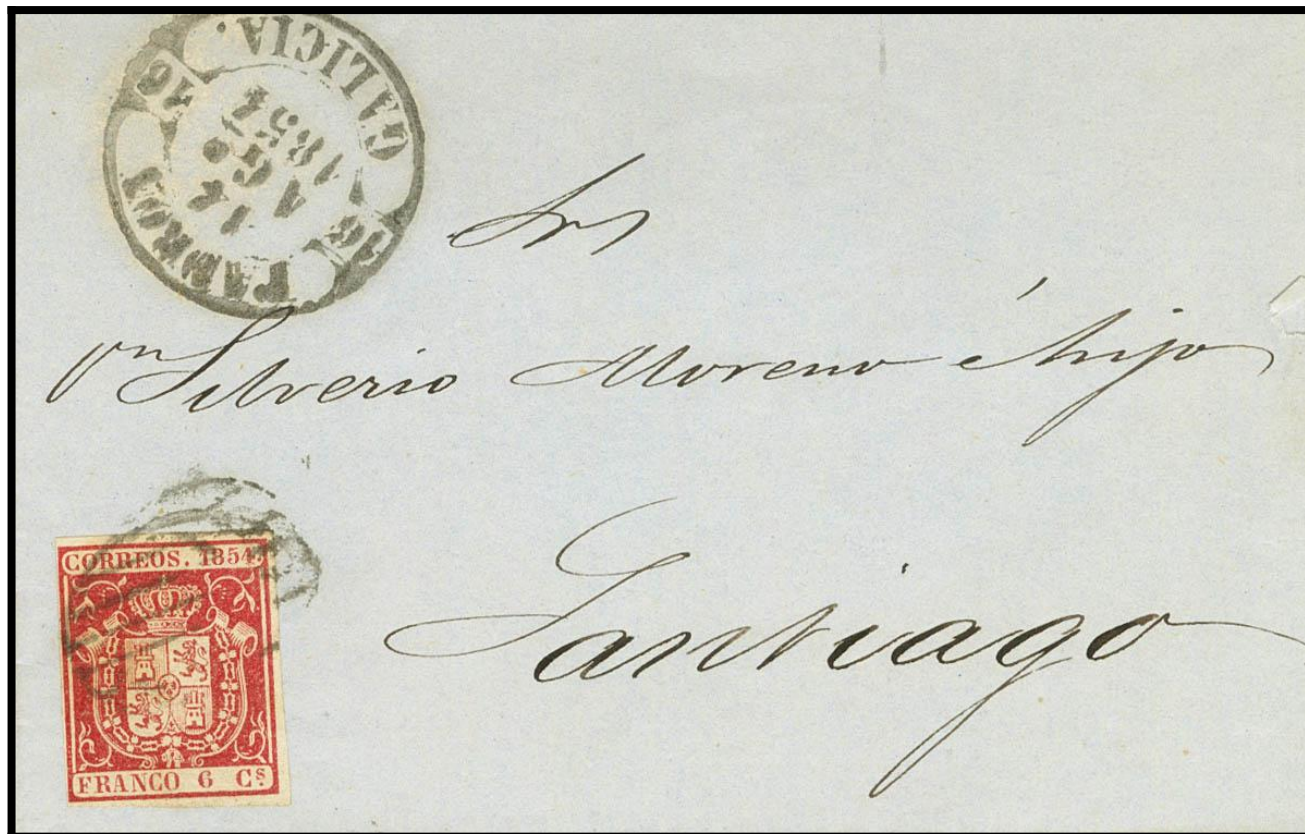 PADRON
16 16
14
AGº
1854
GALICIA.
Srs
Dn Silverio Moreno é hijo
Santiago
CORREOS. 1854.
FRANCO 6 Cs